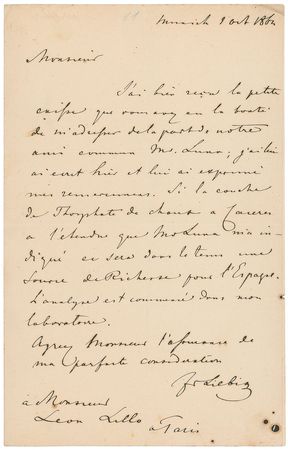 Munich 1 oct 1864
Monsieur
J'ai bien reçu la petite
caisse que vous avez eu la bonté
de m'adresser de la part de notre
ami commun M. Luna; je lui
ai ecrit hier et lui ai exprimé
mes remercimens. Si la couche
de Phosphate de chaux a Caceres
a l'étendue que Mr Luna m'a in-
diqué ce sera dans le tems une
Source de Richesse pour l'Espagne.
L'analyse est commencé dans mon
laboratoire.
Agreez Monsieur l'assurance de
ma parfaite consideration
Fr Liebig
a Monsieur
Leon Lillo
a Paris